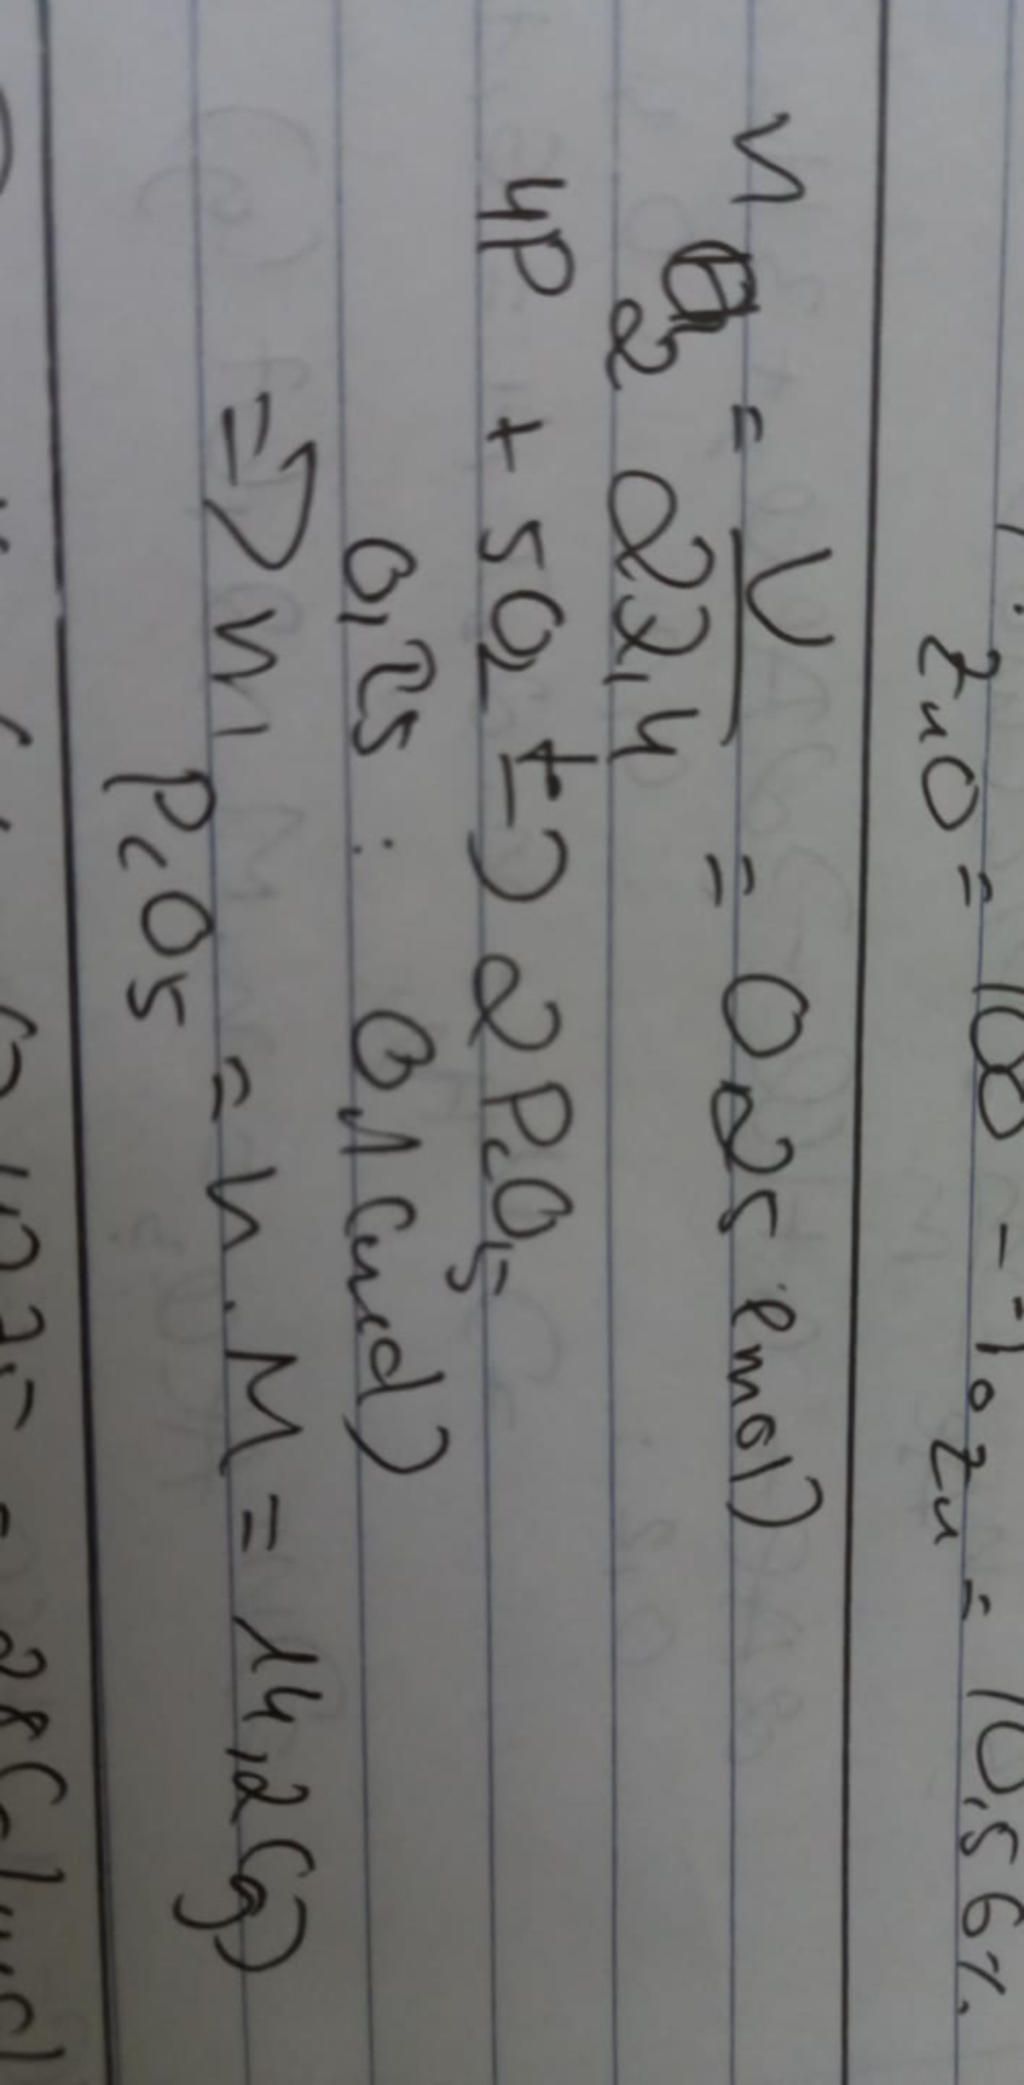 ZnO = 100 - % Zn = 10,56%.
n O2 = V / 22,4 = 0,25 (mol)
4P + 5O2 t→ 2P2O5
0,25 : 0,1 (mol)
=> m P2O5 = n . M = 14,2 (g)